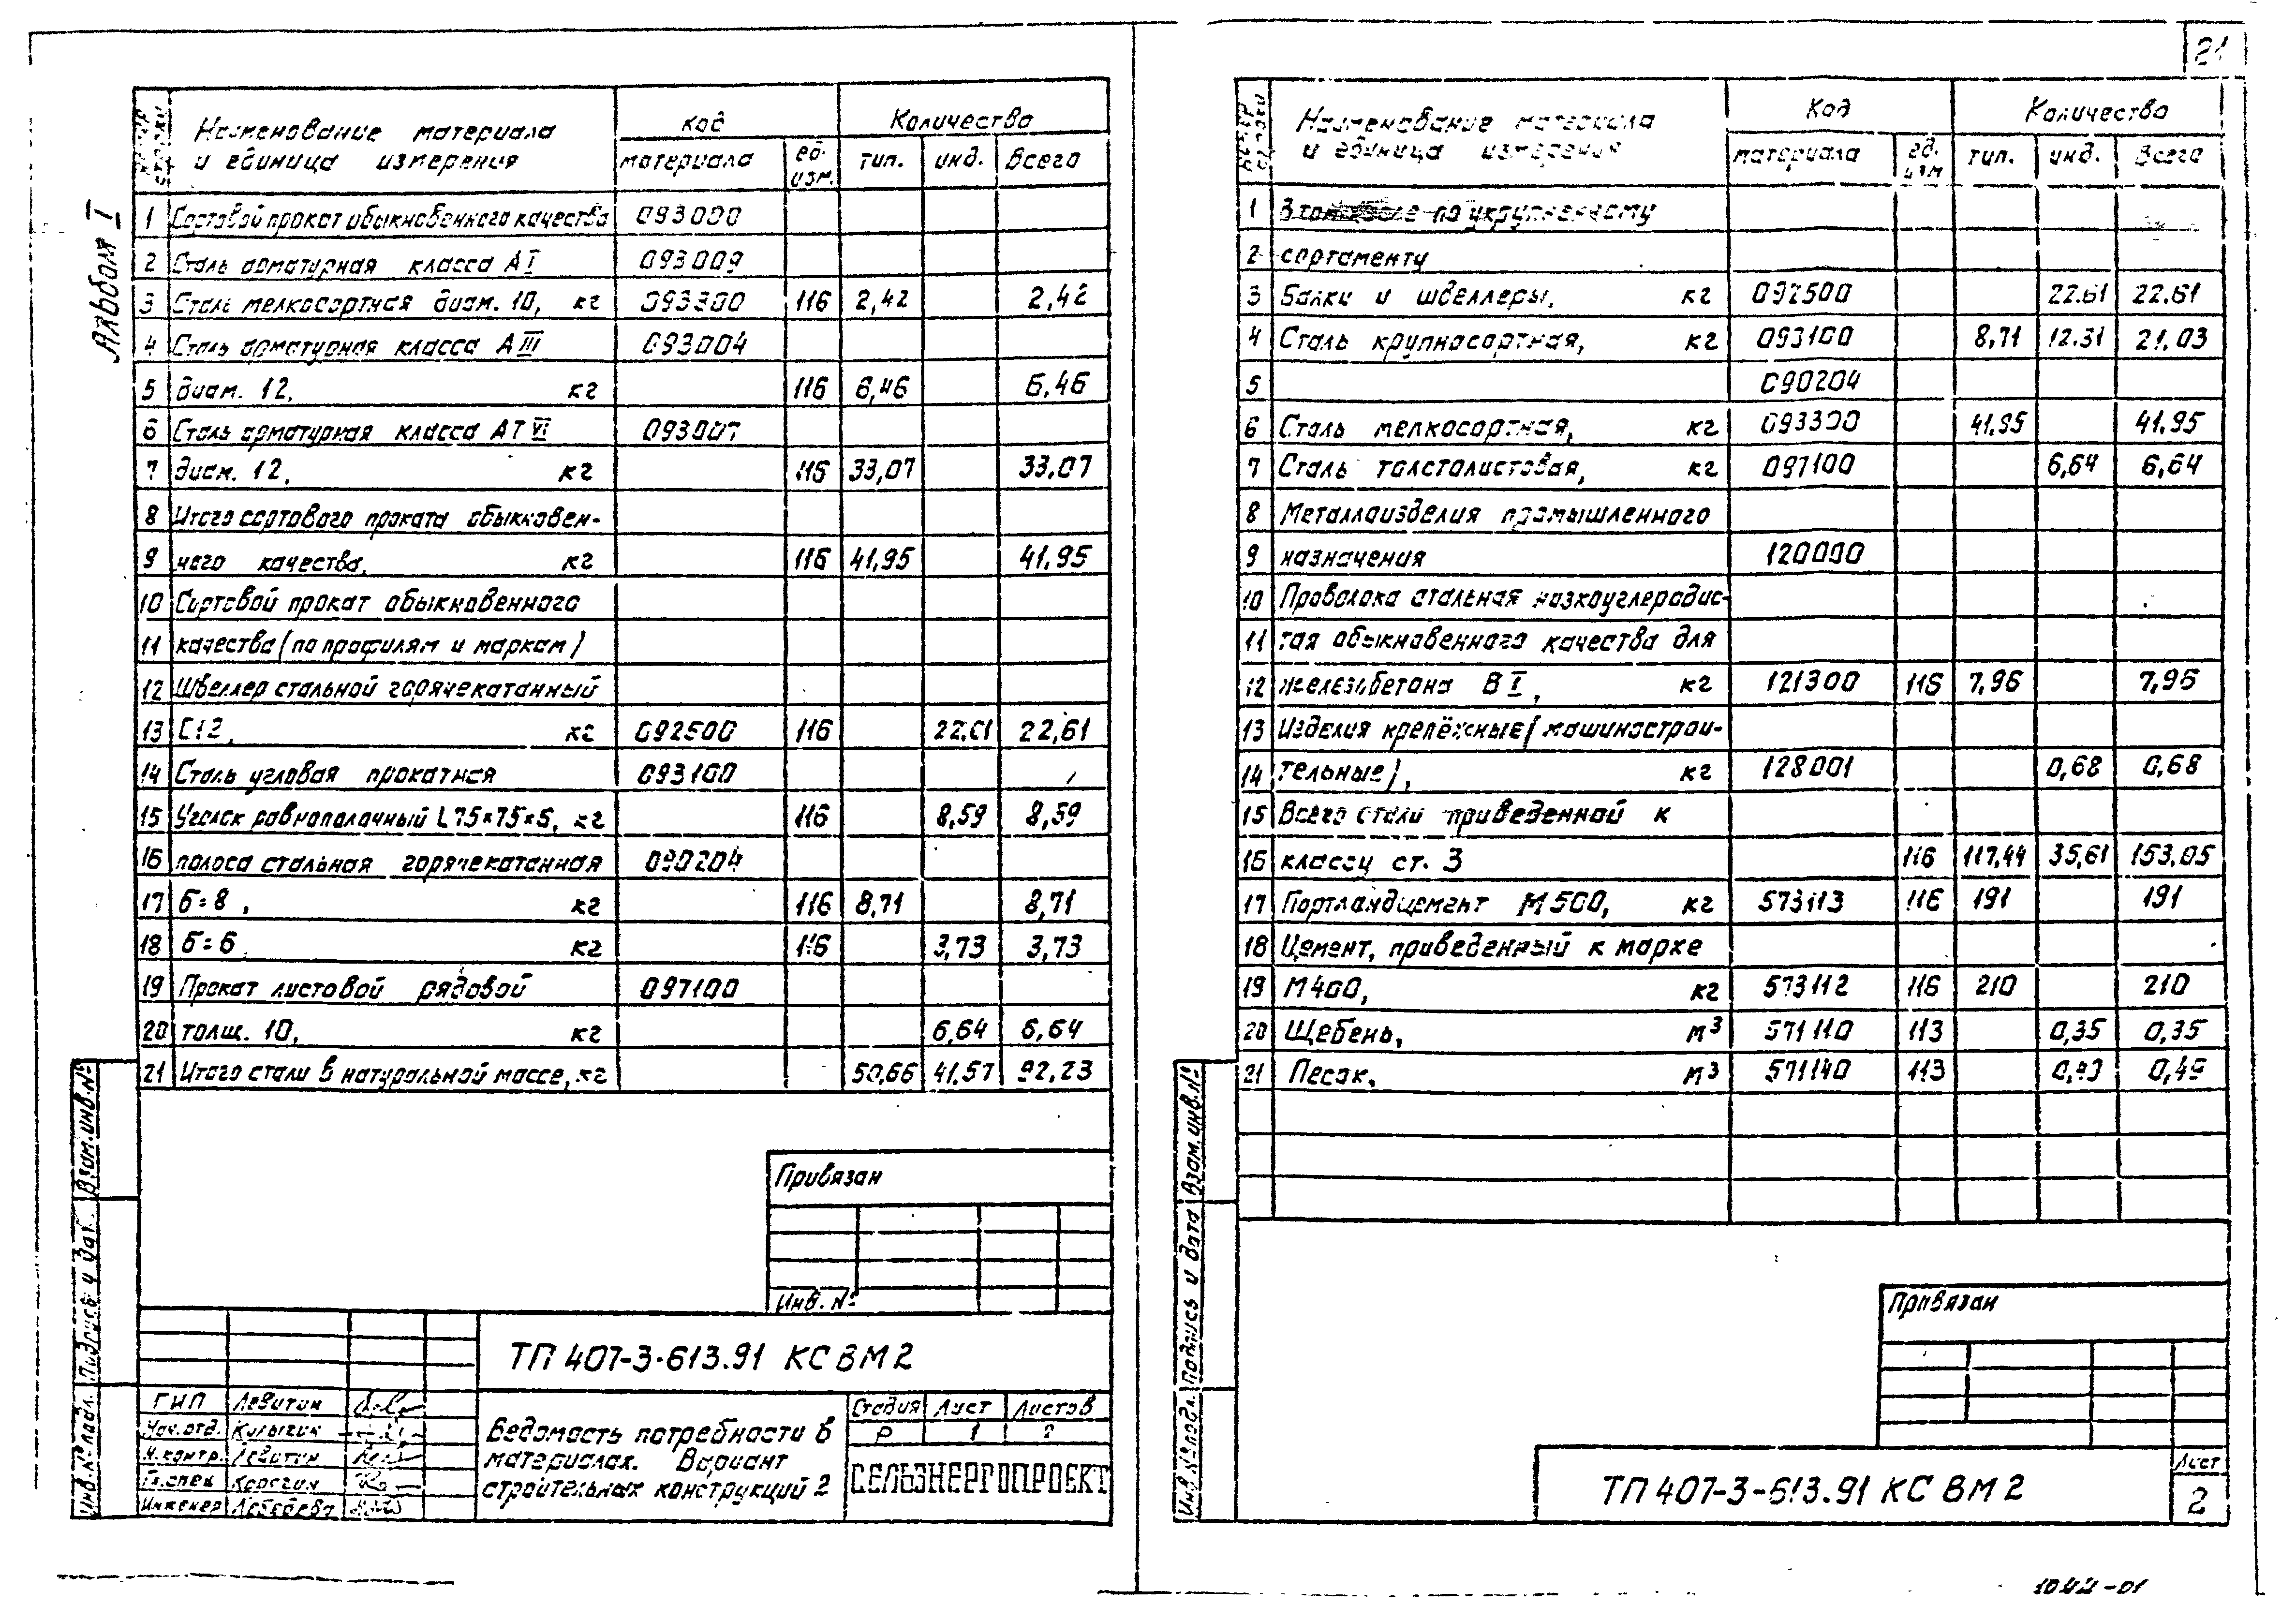 21
Альбом I
Наименование материала и единица измерения
Код
Количество
материала
ед. изм.
тип.
инд.
всего
1 Сортовой прокат обыкновенного качества 093000
2 Сталь арматурная класса АI 093009
3 Сталь мелкосортная диам. 10, кг 093300 116 2,42 2,42
4 Сталь арматурная класса АIII 093004
5 диам. 12, кг 116 6,46 6,46
6 Сталь арматурная класса АТVI 093007
7 диам. 12, кг 116 33,07 33,07
8 Итого сортового проката обыкновен-
9 ного качества, кг 116 41,95 41,95
10 Сортовой прокат обыкновенного
11 качества (по профилям и маркам)
12 Швеллер стальной горячекатанный
13 С12, кг 092500 116 22,61 22,61
14 Сталь угловая прокатная 093100
15 Уголок равнополочный L75×75×5, кг 116 8,59 8,59
16 полоса стальная горячекатанная 090204
17 б=8, кг 116 8,71 8,71
18 б=6 кг 116 3,73 3,73
19 Прокат листовой рядовой 097100
20 толщ. 10, кг 6,64 6,64
21 Итого стали в натуральной массе, кг 50,66 41,57 92,23
Привязан
Инв. №
ТП 407-3-613.91 КС ВМ2
ГИП Левитин
Нач.отд.
Н.контр. Левитин
Гл.спец Карагин
Инженер Лебедева
Ведомость потребности в
материалах. Вариант
строительных конструкций 2
Стадия Лист Листов
Р 1 2
СЕЛЬЭНЕРГОПРОЕКТ
Инв.№подл. Подпись и дат. Взам.инв.№
Наименование материала и единица измерения
Код
Количество
материала
ед. изм
тип.
инд.
всего
1 В том числе по укрупненному
2 сортаменту
3 Балки и швеллеры, кг 092500 22.61 22.61
4 Сталь крупносортная, кг 093100 8,71 12.31 21,03
5 090204
6 Сталь мелкосортная, кг 093300 41.95 41.95
7 Сталь толстолистовая, кг 097100 6,64 6,64
8 Металлоизделия промышленного
9 назначения 120000
10 Проволока стальная низкоуглеродис-
11 тая обыкновенного качества для
12 железобетона ВI, кг 121300 116 7,96 7,96
13 Изделия крепёжные (машинострои-
14 тельные), кг 128001 0,68 0,68
15 Всего стали приведенной к
16 классу ст. 3 116 117,44 35,61 153,05
17 Портландцемент М500, кг 573113 116 191 191
18 Цемент, приведенный к марке
19 М400, кг 573112 116 210 210
20 Щебень, м³ 571110 113 0,35 0,35
21 Песок, м³ 571140 113 0,49 0,49
Привязан
ТП 407-3-613.91 КС ВМ2
Лист
2
Инв.№подл. Подпись и дата Взам.инв.№